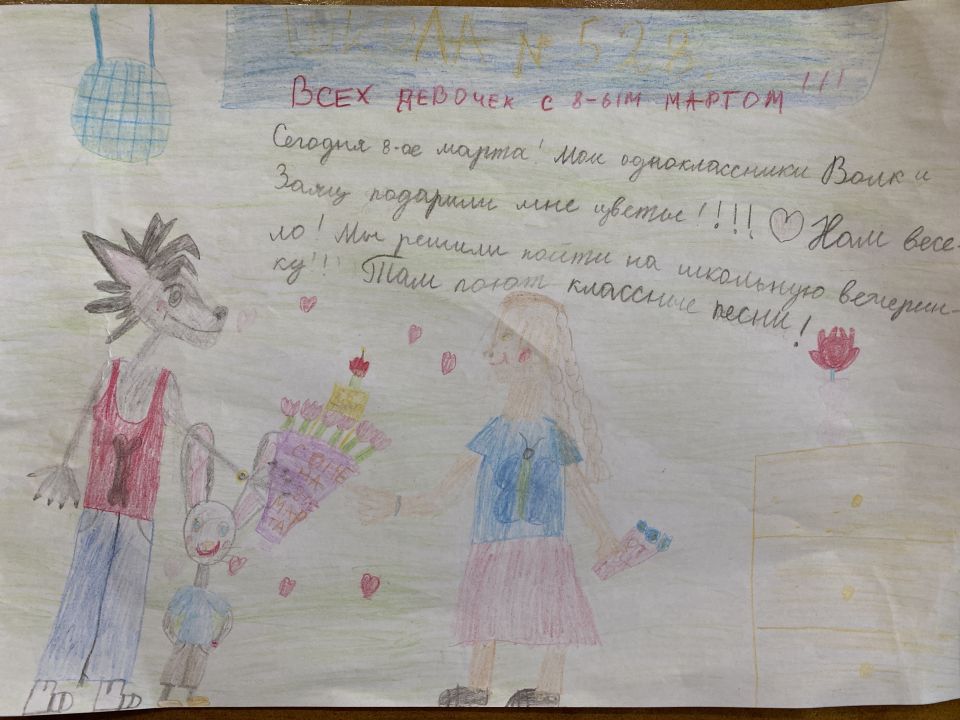 ШКОЛА № 528.
ВСЕХ ДЕВОЧЕК С 8-ЫМ МАРТОМ!!!
Сегодня 8-ое марта! Мои одноклассники Волк и
Заяц подарили мне цветы!!!!! ♡ Нам весе-
ло! Мы решили пойти на школьную вечерин-
ку!!! Там поют классные песни!
8
МАР
ТА!